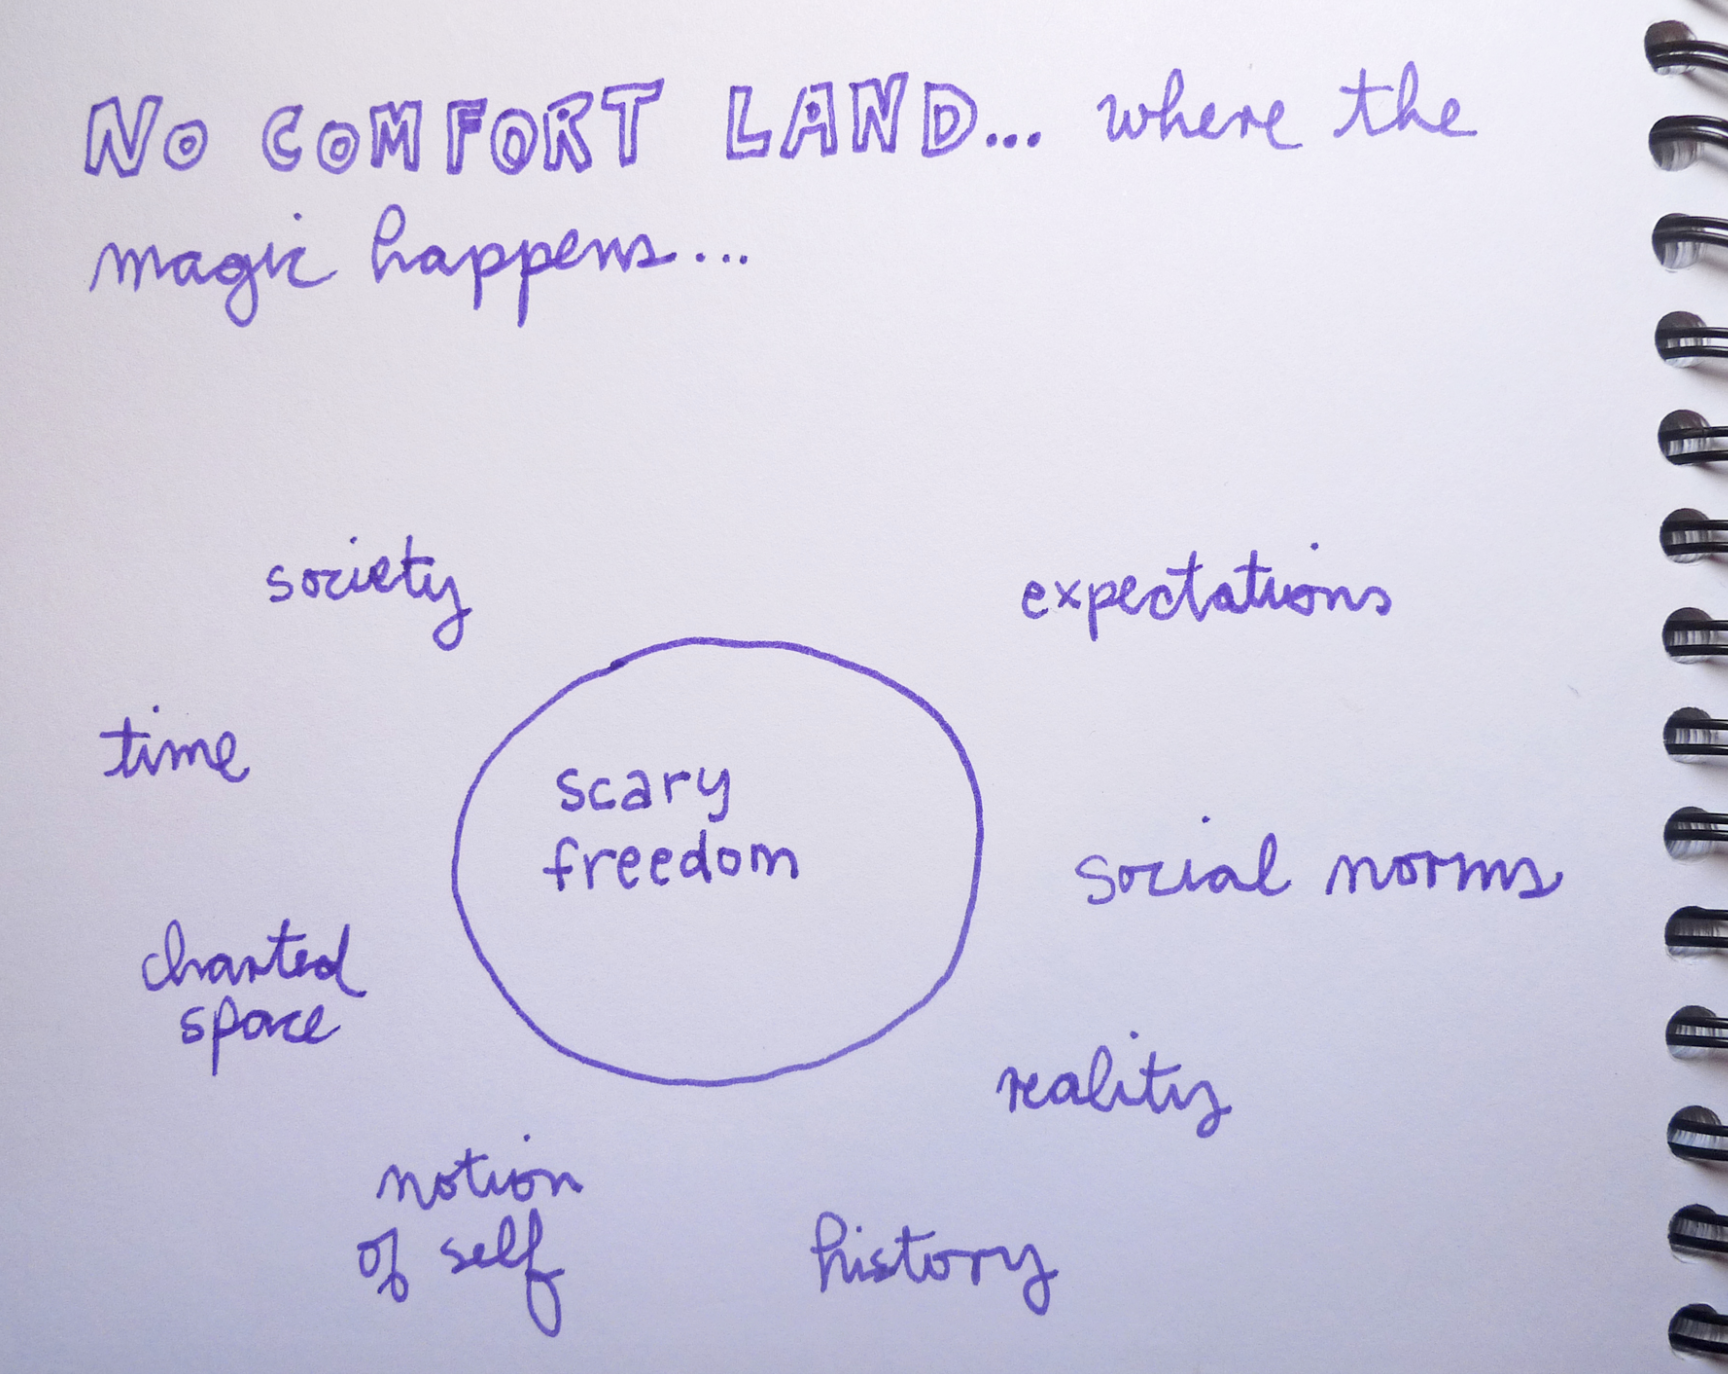 NO COMFORT LAND... where the
magic happens...
society
expectations
time
scary
freedom
social norms
charted
space
reality
notion
of self
history